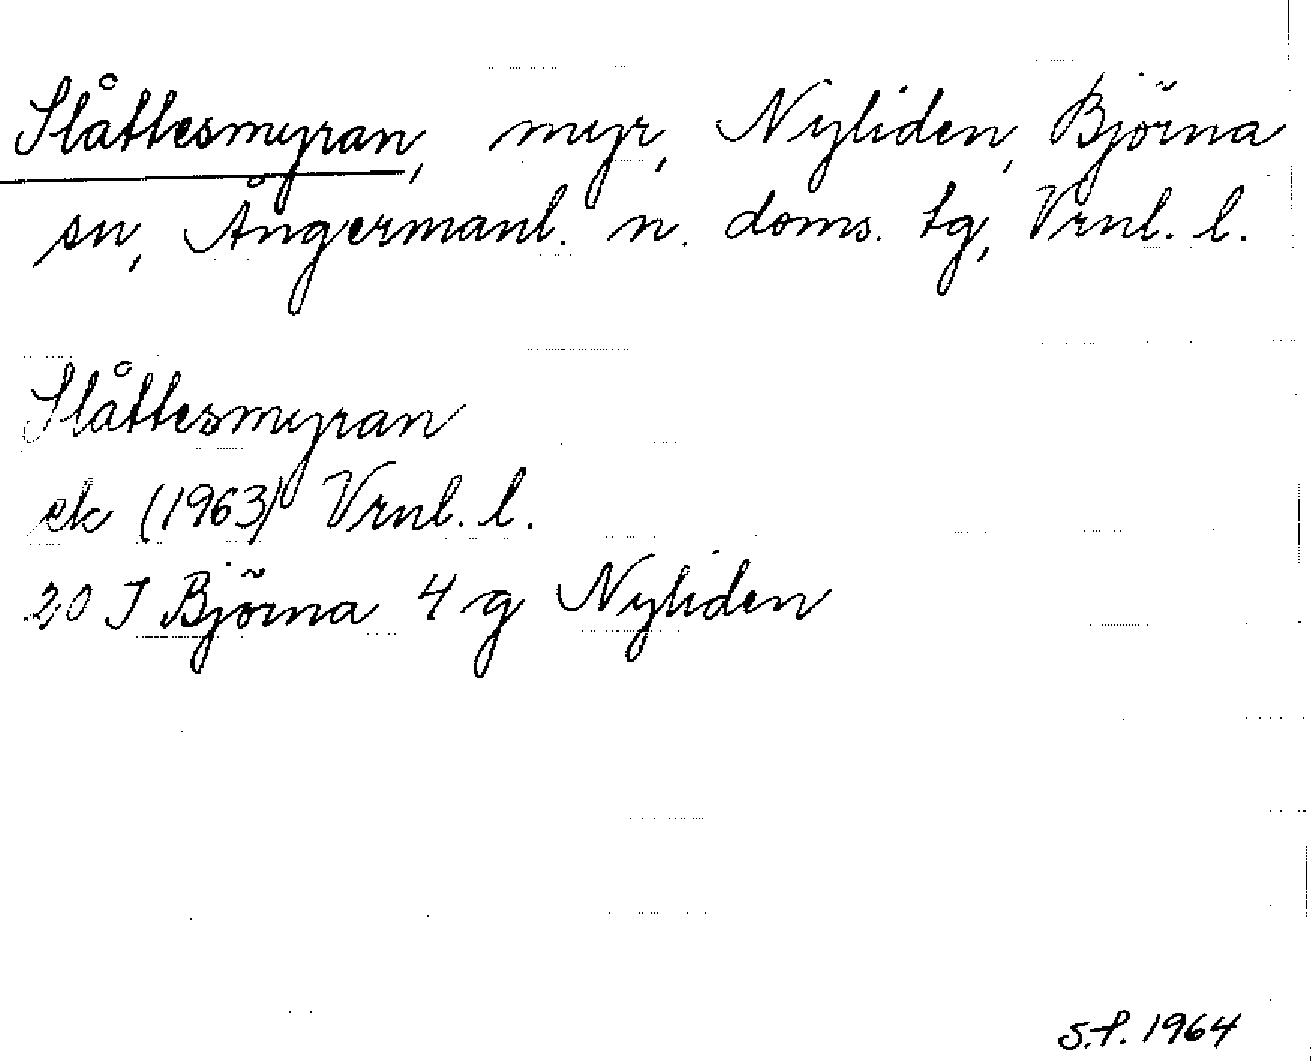 Slåttesmyran, myr, Nyliden, Björna
sn, Ångermanl. n. doms. tg, Vrnl. l.
Slåttesmyran
ek (1963) Vrnl. l.
20 I Björna 4 g Nyliden
S.P. 1964